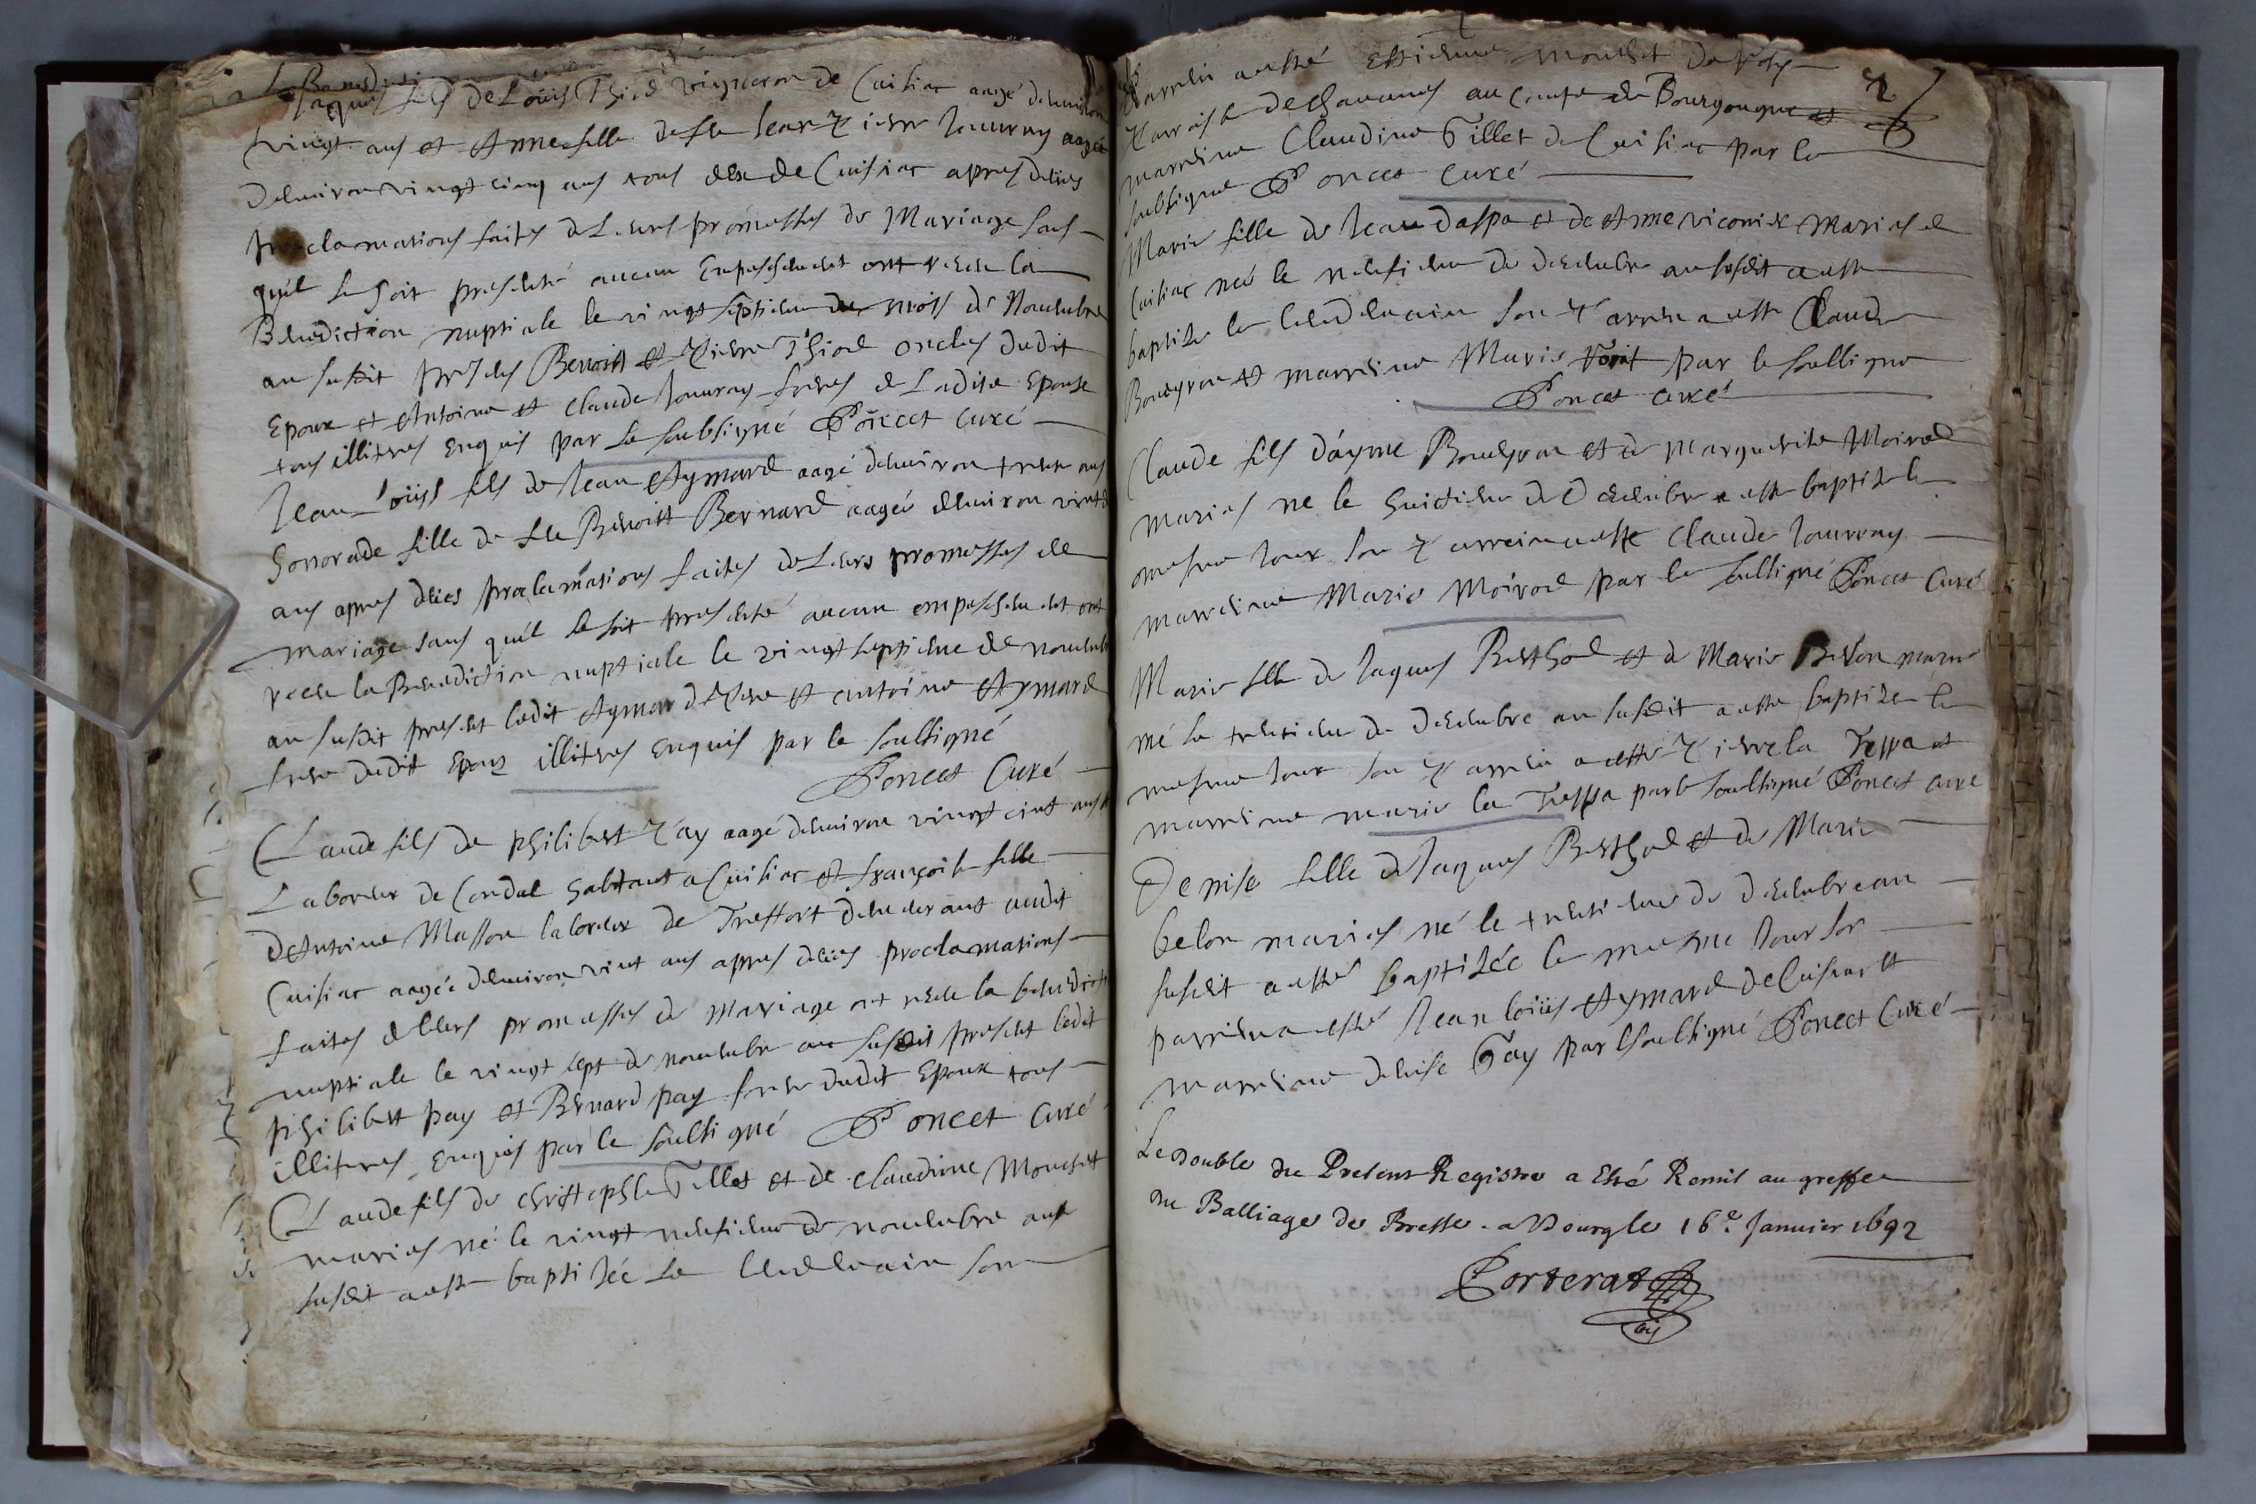 Jaques fils de Louis Thiod vigneron de Cuisiac aagé denviron
vingt ans et Anne fille de feu Jean Pierre Jouvray aagée
denviron vingt cinq ans tous deux de Cuisiac apres deües
proclamations faites de Leurs promesses de Mariage sans
quil se soit presenté aucun Empeschement ont receu la
Benediction nuptiale le vingt septieme du mois de Novembre
an susdit presens Benoist et Pierre Thiod oncles dudit
Epoux et Antoine et Claude Jouvray freres de Ladite Epouse
tous illitres enquis par le soubsigné Poncet Curé
Jean Loüys fils de Jean Aymard aagé denviron trente ans
honorade fille de feu Benoist Bernard aagée denviron vint
ans apres deües proclamations faites de Leurs promesses de
mariage sans quil se soit presenté aucun empeschement ont
receu la Benediction nuptiale le vingt septieme de novembre
an susdit present ledit Aymard Pere et antoine Aymard
frere dudit Epoux illitres enquis par le soubsigné
Poncet Curé
Claude fils de philibert Pay aagé denviron vingt cint ans et
Laboreur de Condal habitant a Cuisiac et françoise fille
dAntoine Masson laboreur de Treffort demeurant audit
Cuisiac aagée denviron vint ans apres deües proclamations
faites de leurs promesses de mariage ont receu la benediction
nuptiale le vingt sept de novembre an susdit present ledit
philibert pay et Benard pay frere dudit Epoux tous
illitres enquis par le soubsigné Poncet Curé
Claude fils de christophle Tillet et de claudine Mouchet
maries né le vingt neufieme de novembre an
susdit a esté baptizée le lendemain son
Parrein a esté Estienne Mouchet de
Parroisse de chavanes au Comté de Bourgongne et
marreine Claudine Tillet de Cuisiac par le
soubsigné Poncet Curé
Marie fille de Jean daspa et de Anne viconte Maries de
Cuisiac née le neufieme de decembre an susdit a esté
baptizée le lendemain son Parrein a esté Claude
Bouvyron et marreine Marie par le soubsigné
Poncet curé
Claude fils d'ayme Bouvyron et de Marguerite Moirod
maries né le huictieme de decembre a esté baptizé le
mesme Jour son Parrein a esté Claude Jouvray
marreine Marie Moirod par le soubsigné Poncet Curé
Marie fille de Jaques Berthod et de Marie Belon maries
né le trentieme de decembre an susdit a esté baptizée le
mesme Jour son Parrein a esté Pierre la Treppa et
marreine marie la Treppa par le soubsigné Poncet curé
Denise fille de Jaques Berthod et de Marie
belon maries né le trentieme de decembre an
susdit a esté baptizée le mesme Jour son
parrein a esté Jean loüis Aymard de Cuisiac et
marreine denise Gay par le soubsigné Poncet Curé
Le double du Present Registre a Esté Remis au greffe
du Balliage de Bresse a Bourg le 16e Janvier 1692